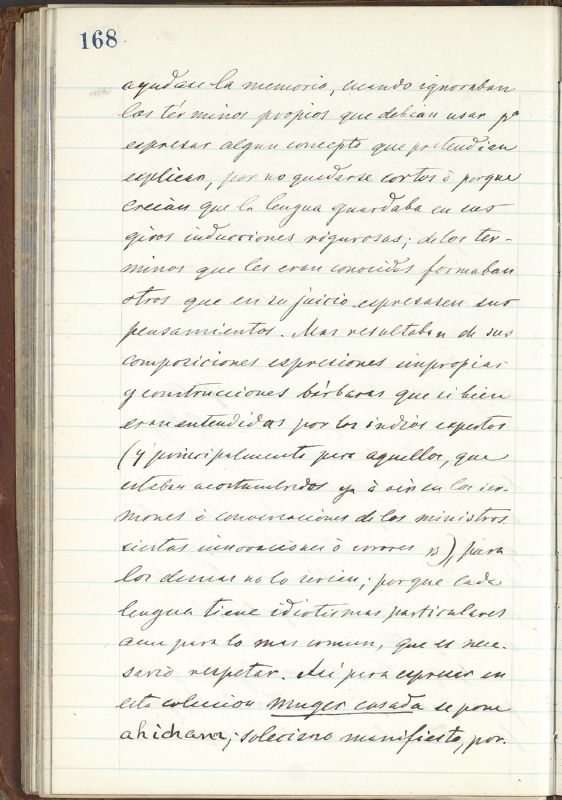 168
ayudase la memoria, cuando ignoraban
los términos propios que debian usar pª
espresar algun concepto que pretendian
esplicar, por no quedarse cortos ó porque
creian que la lengua guardaba en sus
giros inducciones rigurosas; de los ter-
minos que les eran conocidos formaban
otros que en su juicio espresasen sus
pensamientos. Mas resultaban de sus
composiciones espresiones impropias
y construcciones bárbaras que si bien
eran entendidas por los indios espertos
(y principalmente para aquellos, que
estaban acostumbrados ya á oir en los ser-
mones ó conversaciones de los ministros
ciertas innovaciones ó errores), para
los demas no lo serian; porque cada
lengua tiene idiotismos particulares
aun para lo mas comun, que es nece-
sario respetar. Asi para espresar en
esta coleccion muger casada se pone
ahichava; solecismo manifiesto, por-